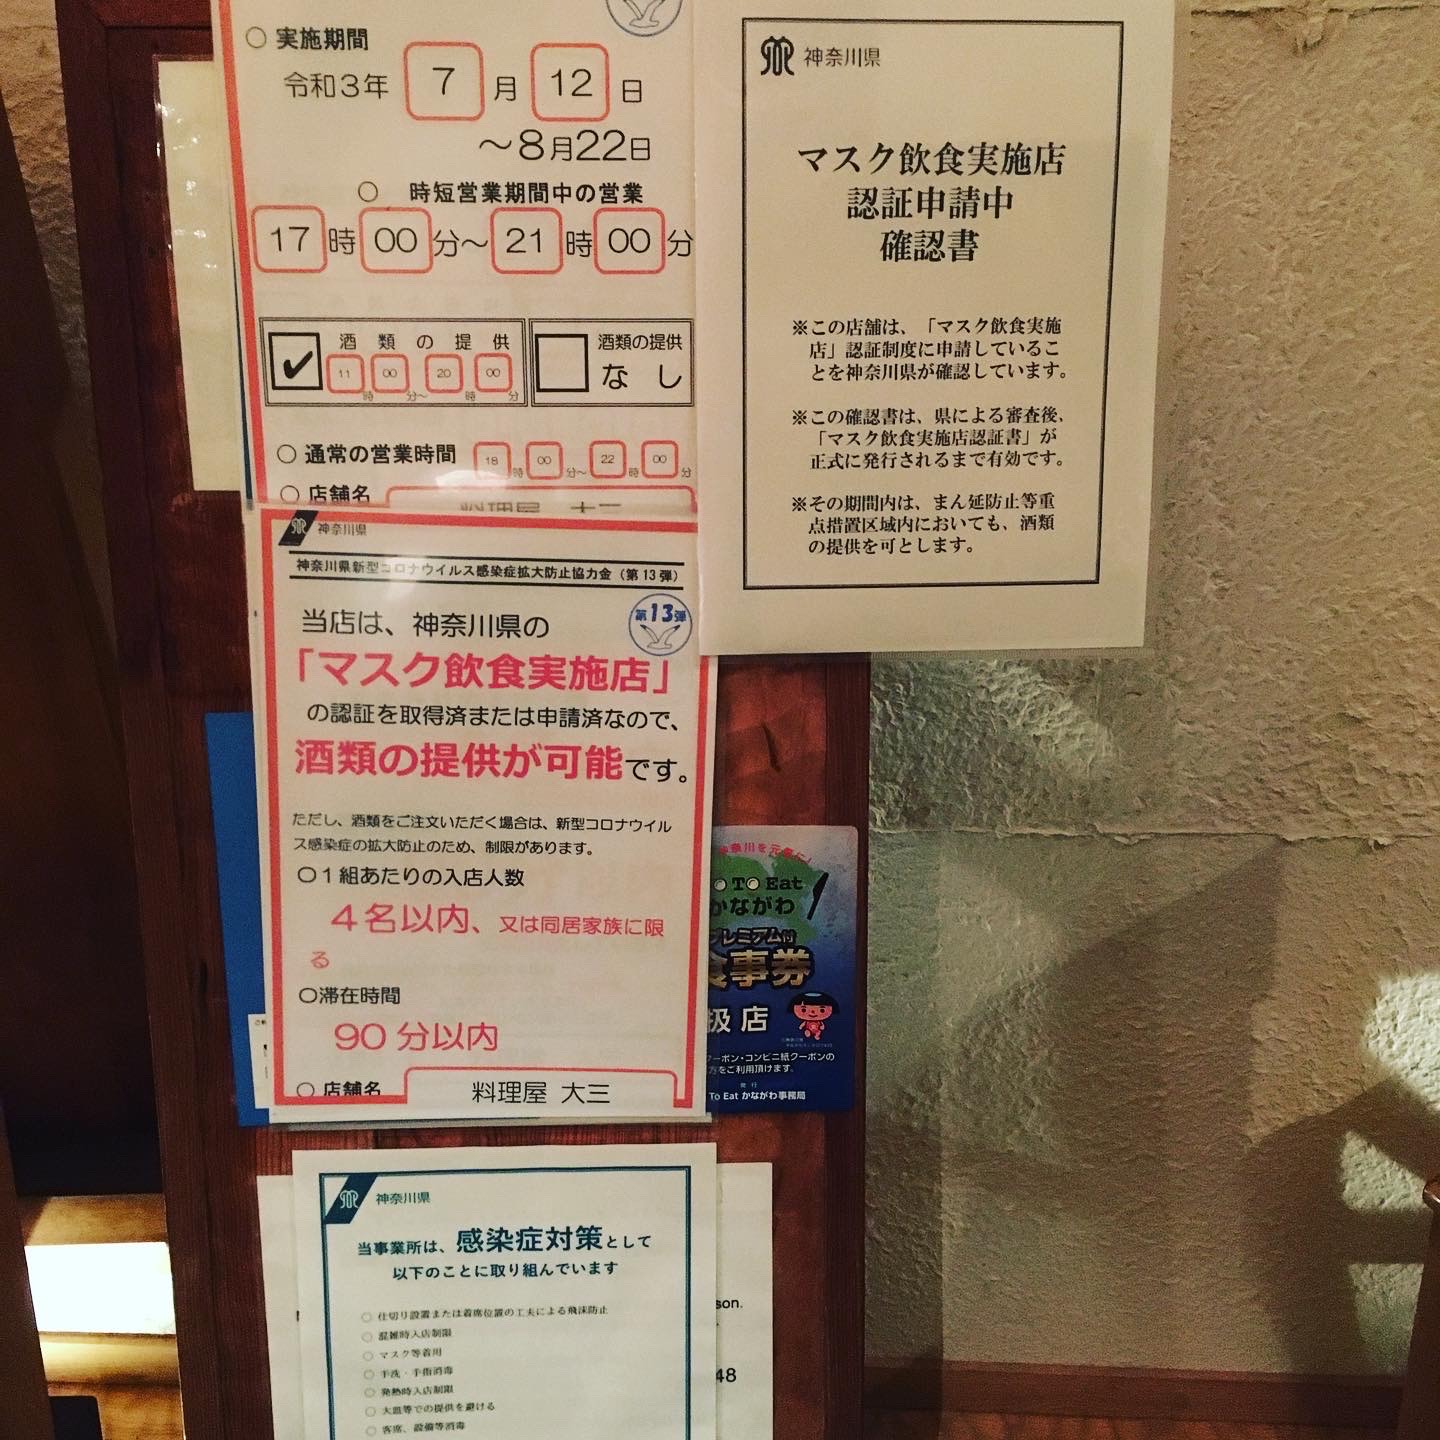 ○ 実施期間
令和3年 7 月 12 日
～8月22日
○ 時短営業期間中の営業
17 時 00 分～ 21 時 00 分
✔ 酒類の提供
11 時 00 分～ 20 時 00 分
酒類の提供
なし
○ 通常の営業時間 18 時 00 分～ 22 時 00 分
○ 店舗名
神奈川県
マスク飲食実施店
認証申請中
確認書
※この店舗は、「マスク飲食実施
店」認証制度に申請しているこ
とを神奈川県が確認しています。
※この確認書は、県による審査後、
「マスク飲食実施店認証書」が
正式に発行されるまで有効です。
※その期間内は、まん延防止等重
点措置区域内においても、酒類
の提供を可とします。
神奈川県
神奈川県新型コロナウイルス感染症拡大防止協力金（第13弾）
第13弾
当店は、神奈川県の
「マスク飲食実施店」
の認証を取得済または申請済なので、
酒類の提供が可能です。
ただし、酒類をご注文いただく場合は、新型コロナウイル
ス感染症の拡大防止のため、制限があります。
○1組あたりの入店人数
4名以内、又は同居家族に限
る
○滞在時間
90分以内
○ 店舗名 料理屋 大三
神奈川を元気に!
TO Eat
かながわ
プレミアム付
食事券
扱店
クーポン・コンビニ紙クーポンの
方をご利用頂けます。
発行
To Eat かながわ事務局
神奈川県
当事業所は、感染症対策として
以下のことに取り組んでいます
○ 仕切り設置または着席位置の工夫による飛沫防止
○ 混雑時入店制限
○ マスク等着用
○ 手洗・手指消毒
○ 発熱時入店制限
○ 大皿等での提供を避ける
○ 客席、設備等消毒
son.
48